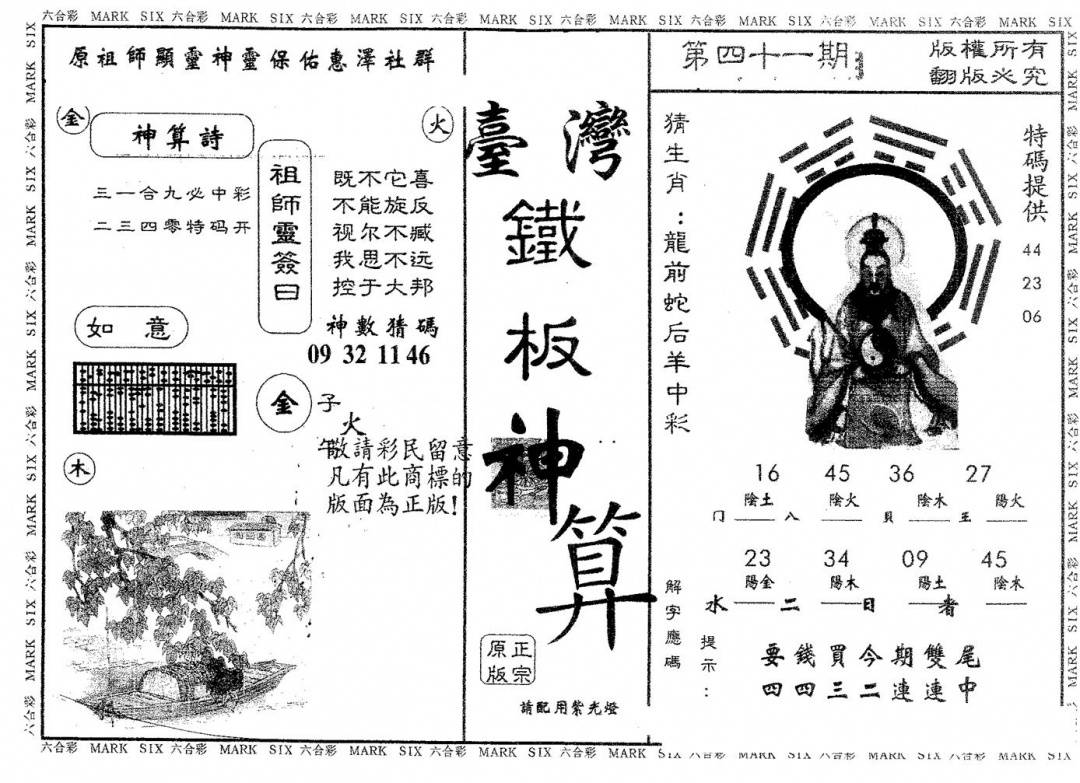 六合彩 MARK SIX 六合彩 MARK SIX 六合彩 MARK SIX 六合彩 MARK SIX 六合彩 MARK SIX 六合彩 MARK SIX 六合彩 MARK SIX 六合彩 MARK SIX
原祖師顯靈神靈保佑惠澤社群
金
神算詩
火
三一合九必中彩
二三四零特码开
祖師靈簽曰
既不它喜
不能旋反
视尔不臧
我思不远
控于大邦
神數猜碼
09 32 11 46
如 意
金
子
火
午
木
敬請彩民留意
凡有此商標的
版面為正版!
臺灣
鐵板神算
正宗
原版
請配用紫光燈
第四十一期
版權所有
翻版必究
猜生肖：龍前蛇后羊中彩
特碼提供
44
23
06
16 45 36 27
陰土 陰火 陰木 陽火
门 八 貝 王
23 34 09 45
陽金 陽木 陽土 陰水
水 二 日 者
解字應碼
提示：
要錢買今期雙尾
四四三二連連中
六合彩 MARK SIX 六合彩 MARK SIX 六合彩 MARK SIX 六合彩 MARK SIX 六合彩